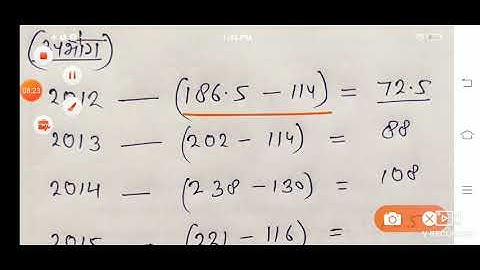 (उपभोग)
2012 — (186.5 - 114) = 72.5
2013 — (202 - 114) = 88
2014 — (238 - 130) = 108
2015 — (221 - 116) =
08:23